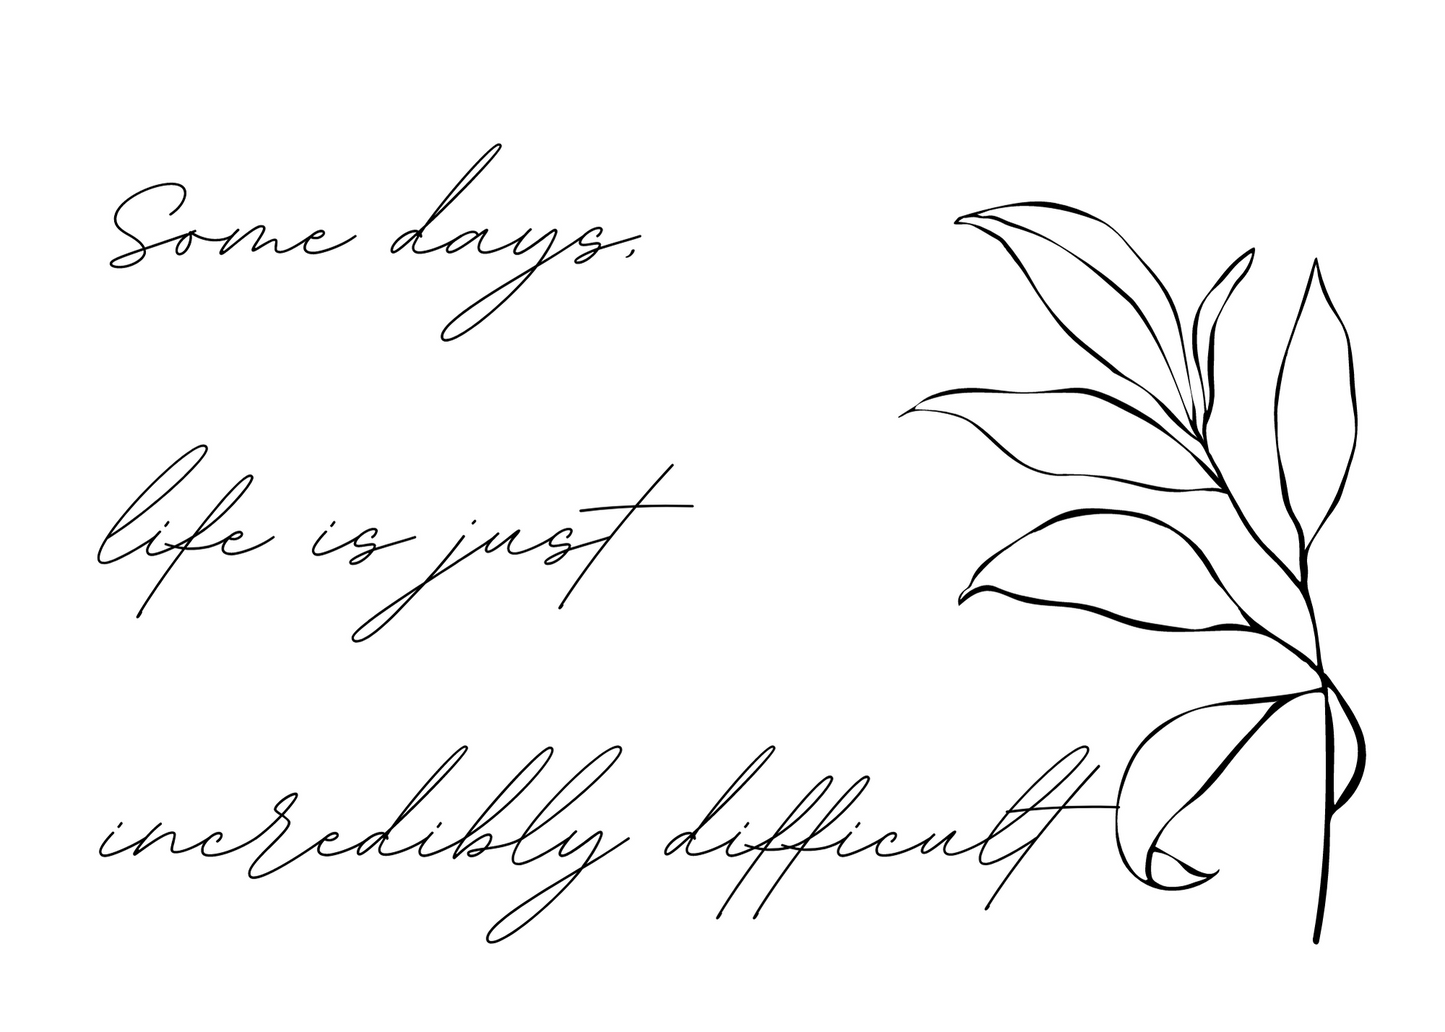 Some days,
life is just
incredibly difficult